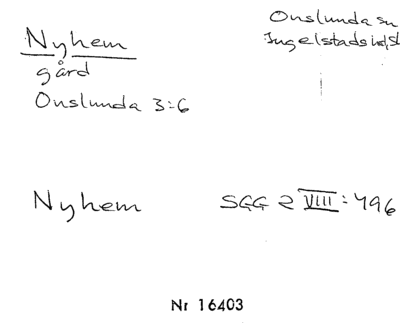 Nyhem
gård
Onslunda 3:6
Onslunda sn
Ingelstads hd, sk
Nyhem
SGG 2 VIII: 496
Nr 16403